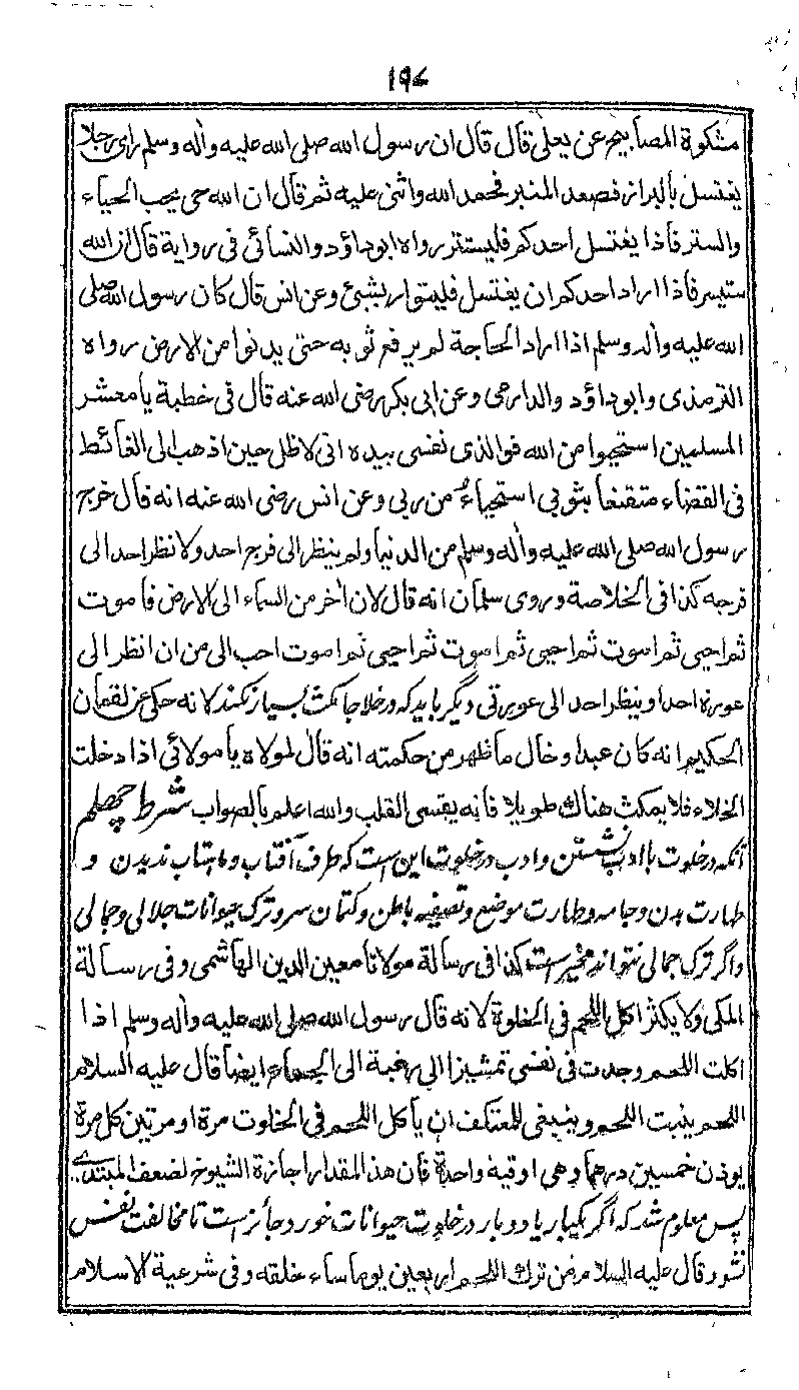 ١٩٧
مشكوة المصابيح عن يعلى قال قال ان رسول الله صلى الله عليه واله وسلم راى رجلا
يغتسل بالبراز فصعد المنبر فحمد الله واثنى عليه ثم قال ان الله حى يحب الحياء
والستر فاذا يغتسل احدكم فليستتر رواه ابوداؤد والنسائى فى رواية قال ان الله
ستير فاذا اراد احدكم ان يغتسل فليتوار بشئ وعن انس قال كان رسول الله صلى
الله عليه واله وسلم اذا اراد الحاجة لم يرفع ثوبه حتى يدنوا من الارض رواه
الترمذى وابوداؤد والدارمى وعن ابى بكر رضى الله عنه قال فى خطبة يامعشر
المسلمين استحيوا من الله فوالذى نفسى بيده انى لاظل حين اذهب الى الغائط
فى القضاء متقنعا بثوبى استحياءً من ربى وعن انس رضى الله عنه انه قال خرج
رسول الله صلى الله عليه واله وسلم من الدنيا ولم ينظر الى فرج احد ولا نظر احد الى
فرجه كذا فى الخلاصة وروى سلمان انه قال لان اخر من السماء الى الارض فاموت
ثم احيى ثم اموت ثم احيى ثم اموت ثم احيى ثم اموت احب الى من ان انظر الى
عورة احد او ينظر احد الى عورتى ديگر بايد كه در خلاجا مكث بسيار نكند لانه حكى عن لقمان
الحكيم انه كان عبدا وخال ماظهر من حكمته انه قال لمولاه يا مولائى اذا دخلت
الخلاء فلا يمكث هناك طويلا فانه يقسى القلب والله اعلم بالصواب شرط چهلم
آنكه در خلوت با ادب نشستن وادب در خلوت اين است كه طرف آفتاب وماهتاب نديدن و
طهارت بدن وجامه وطهارت موضع وتصفيه باطن وكتمان سر وترك حيوانات جلالى وجمالى
واگر ترك جمالى نتواند مخير است كذا فى رسالة مولانا معين الدين الهاشمى وفى رسالة
المكى ولا يكثر اكل اللحم فى الخلوة لانه قال رسول الله صلى الله عليه واله وسلم اذا
اكلت اللحم وجدت فى نفسى الى رغبة الى الجماع ايضا قال عليه السلام
اللحم ينبت اللحم وينبغى للمعتكف ان يأكل اللحم فى الخلوت مرة او مرتين كل مرة
يوذن خمسين درهما وهى اوقية واحدة فان هذا المقدار اجازة الشيوخ لضعف المبتدى
پس معلوم شد كه اگر يكبار يا دوبار در خلوت حيوانات خورد جائز است تا مخالفت نفس
نشود قال عليه السلام من ترك اللحم اربعين يوما ساء خلقه وفى شرعية الاسلام